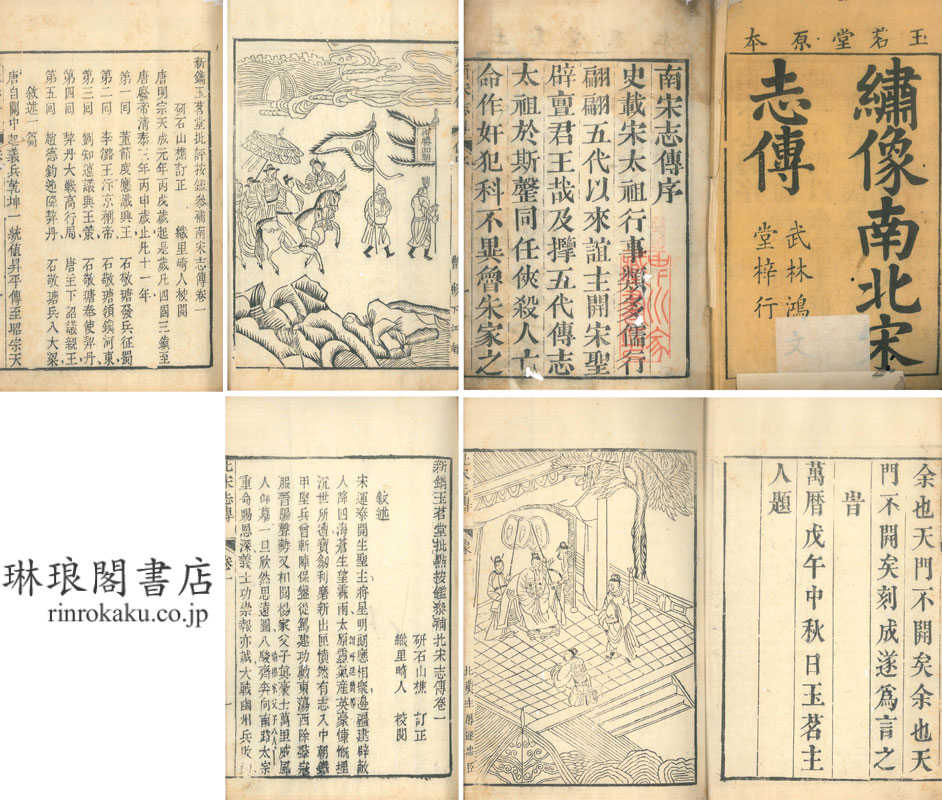 玉茗堂原本
繡像南北宋
志傳
武林鴻
文
堂梓行
南宋志傳序
史載宋太祖行事類多儒行
翩翩五代以來誼主開宋聖
辟亶君王哉及㨿五代傳志
太祖於斯聱同任俠殺人亡
命作奸犯科不異魯朱家之
新鐫玉茗堂批評按鑑參補南宋志傳卷一
研石山樵訂正 織里畸人校閱
唐明宗天成元年丙戌歲起是歲凡四國三鎮至
唐廢帝清泰三年丙申歲止凡十一年
第一回 董節度應讖興王 石敬瑭發兵征蜀
第二回 李潞王汴京稱帝 石敬瑭領鎮河東
第三回 劉知遠議興王策 石敬瑭奉使契丹
第四回 契丹大戰高行周 唐主下詔議親王
第五回 趙德鈞延降契丹 石敬瑭兵入大梁
敘述一篇
唐自關中起義兵乾坤一統值昇平傳至昭宗天
帥
余也天門不開矣余余也天
門不開矣刻成遂為言之
旹
萬曆戊午中秋日玉茗主
人題
北宋志傳
新鐫玉茗堂批點按鑑參補北宋志傳卷一
研石山樵 訂正
織里畸人 校閱
敘述
宋運泰開生聖主將星明朗應相聚邊疆建辟敵
人降四海蒼生望霖雨太原靈氣產英豪慷慨埋
沉世所遺寶劒利磨新出匣憤然有志入中朝
甲堅兵曾斬陣保鑾從駕建功勳東蕩西除
服晉陽聲勢又相聞楊家父子英豪士萬里威風
人仰慕一旦欣然思遠圖八駿齊奔向南路太宗
重命賜恩深義士功崇報亦誠大戰幽州兵敗
北宋志傳 卷一
琳琅閣書店
rinrokaku.co.jp